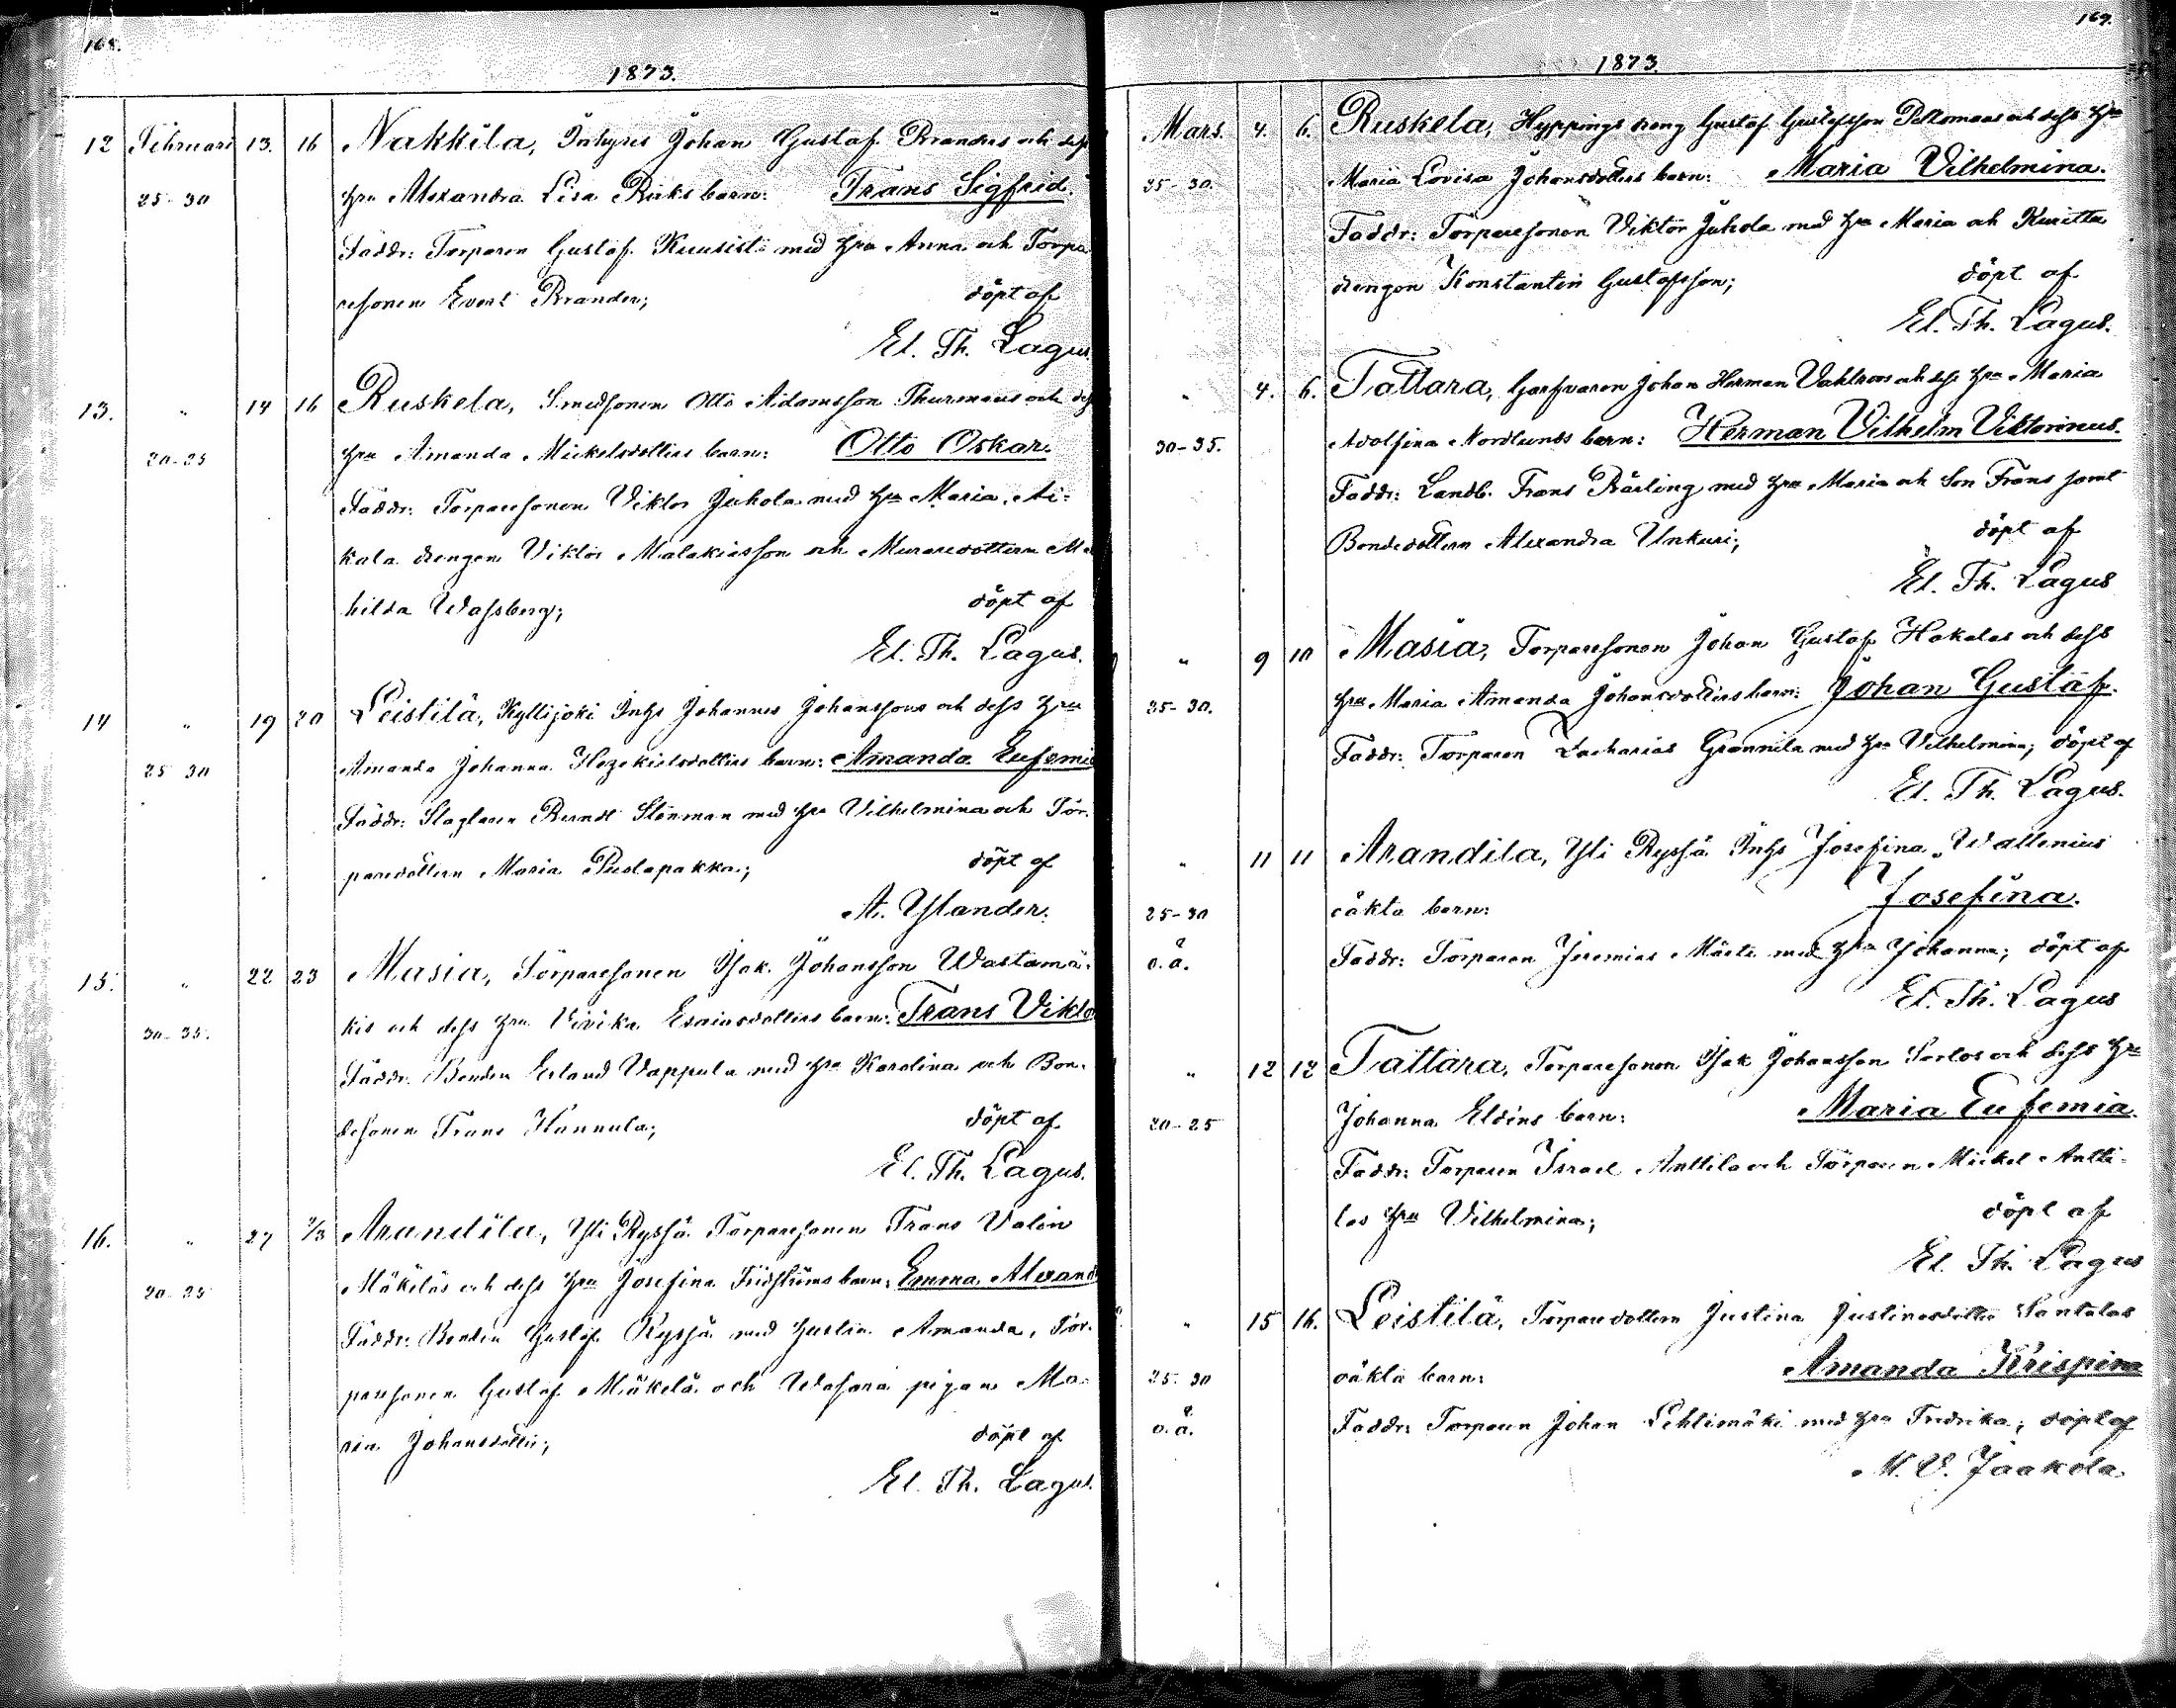 168.
1873.
12 Februari 13. 16 Nakkila, Inhyses Johan Gustaf Branders och dess
25-30 hru Alexandra Lisa Riks barn: Frans Sigfrid.
Faddr: Torparen Gustaf Kuusisto med hru Anna och Torpa-
resonen Evert Brander; döpt af
El. Th. Lagus.
13. " 14 16 Ruskela, Smedsonen Otto Adamsson Thurmans och dess
20-25 hru Amanda Mickelsdotters barn: Otto Oskar.
Faddr: Torparesonen Viktor Juhola med hru Maria, Ai-
kala drengen Viktor Malakiasson och Muraredottern Ma
hilda Wassberg; döpt af
El. Th. Lagus.
14 " 19 20 Leistilä, Kyllijoki Inhs Johannes Johanssons och dess hru
25 30 Amanda Johanna Hezekielsdotters barn: Amanda Eufemia
Faddr: Slagtaren Berndt Stenman med hru Vilhelmina och Tor-
paredottern Maria; döpt af
A. Ylander.
15. " 22 23 Masia, Torparesonen Isak Johansson Wastamä-
30-35. kis och dess hru Vivika Esaiasdotters barn: Frans Vikto
Faddr: Bonden Erland Vappula med hru Karolina och Bon-
desonen Frans Hannula; döpt af
El. Th. Lagus.
16. " 27 2/3 Arandila, Yli Ryssä Torparesonen Frans Valin
20-25 Mäkeläs och dess hru Josefina Fridströms barn: Emma Alexand
Faddr: Bonden Gustaf Ryssä med hustrun Amanda, Tor-
paresonen Gustaf Mäkelä och Wasara pigan Ma-
ria Johansdotter; döpt af
El. Th. Lagus.
169.
1873.
Mars. 4. 6. Ruskela, Hyppings dreng Gustaf Gustafsson Peltomaas och dess hru
25-30. Maria Lovisa Johansdotters barn: Maria Vilhelmina.
Faddr: Torparesonen Viktor Juhola med hru Maria och Kuritta
drengen Konstantin Gustafsson; döpt af
El. Th. Lagus.
" 4. 6. Tattara, Garfvaren Johan Herman Vahlroos och dess hru Maria
30-35. Adolfina Nordlunds barn: Herman Vilhelm Viktorinus.
Faddr: Landb. Frans Bärling med hru Maria och Son Frans samt
Bondedottern Alexandra Unkuri; döpt af
El. Th. Lagus
" 9 10 Masia, Torparesonen Johan Gustaf Hakalas och dess
25-30. hru Maria Amanda Johansdotters barn: Johan Gustaf.
Faddr: Torparen Zacharias Grannila med hru Vilhelmina; döpt af
El. Th. Lagus.
" 11 11 Arandila, Yli Ryssä Inhs Josefina Wallenius
25-30 oäkta barn: Josefina.
o.ä. Faddr: Torparen Jeremias med hru Johanna; döpt af
El. Th. Lagus
" 12 12 Tattara, Torparesonen Isak Johansson Sorlos och dess hru
20-25 Johanna Eldéns barn: Maria Eufemia.
Faddr: Torparen Israel Anttila och Torparen Mickel Antti-
las hru Vilhelmina; döpt af
El. Th. Lagus
" 15 16. Leistilä, Torparedottern Justina Justinesdotter Santalas
25-30 oäkta barn: Amanda Krispina
o.ä. Faddr: Torparen Johan Lehtimäki med hru Fredrika; döpt af
M. V. Jaakola.